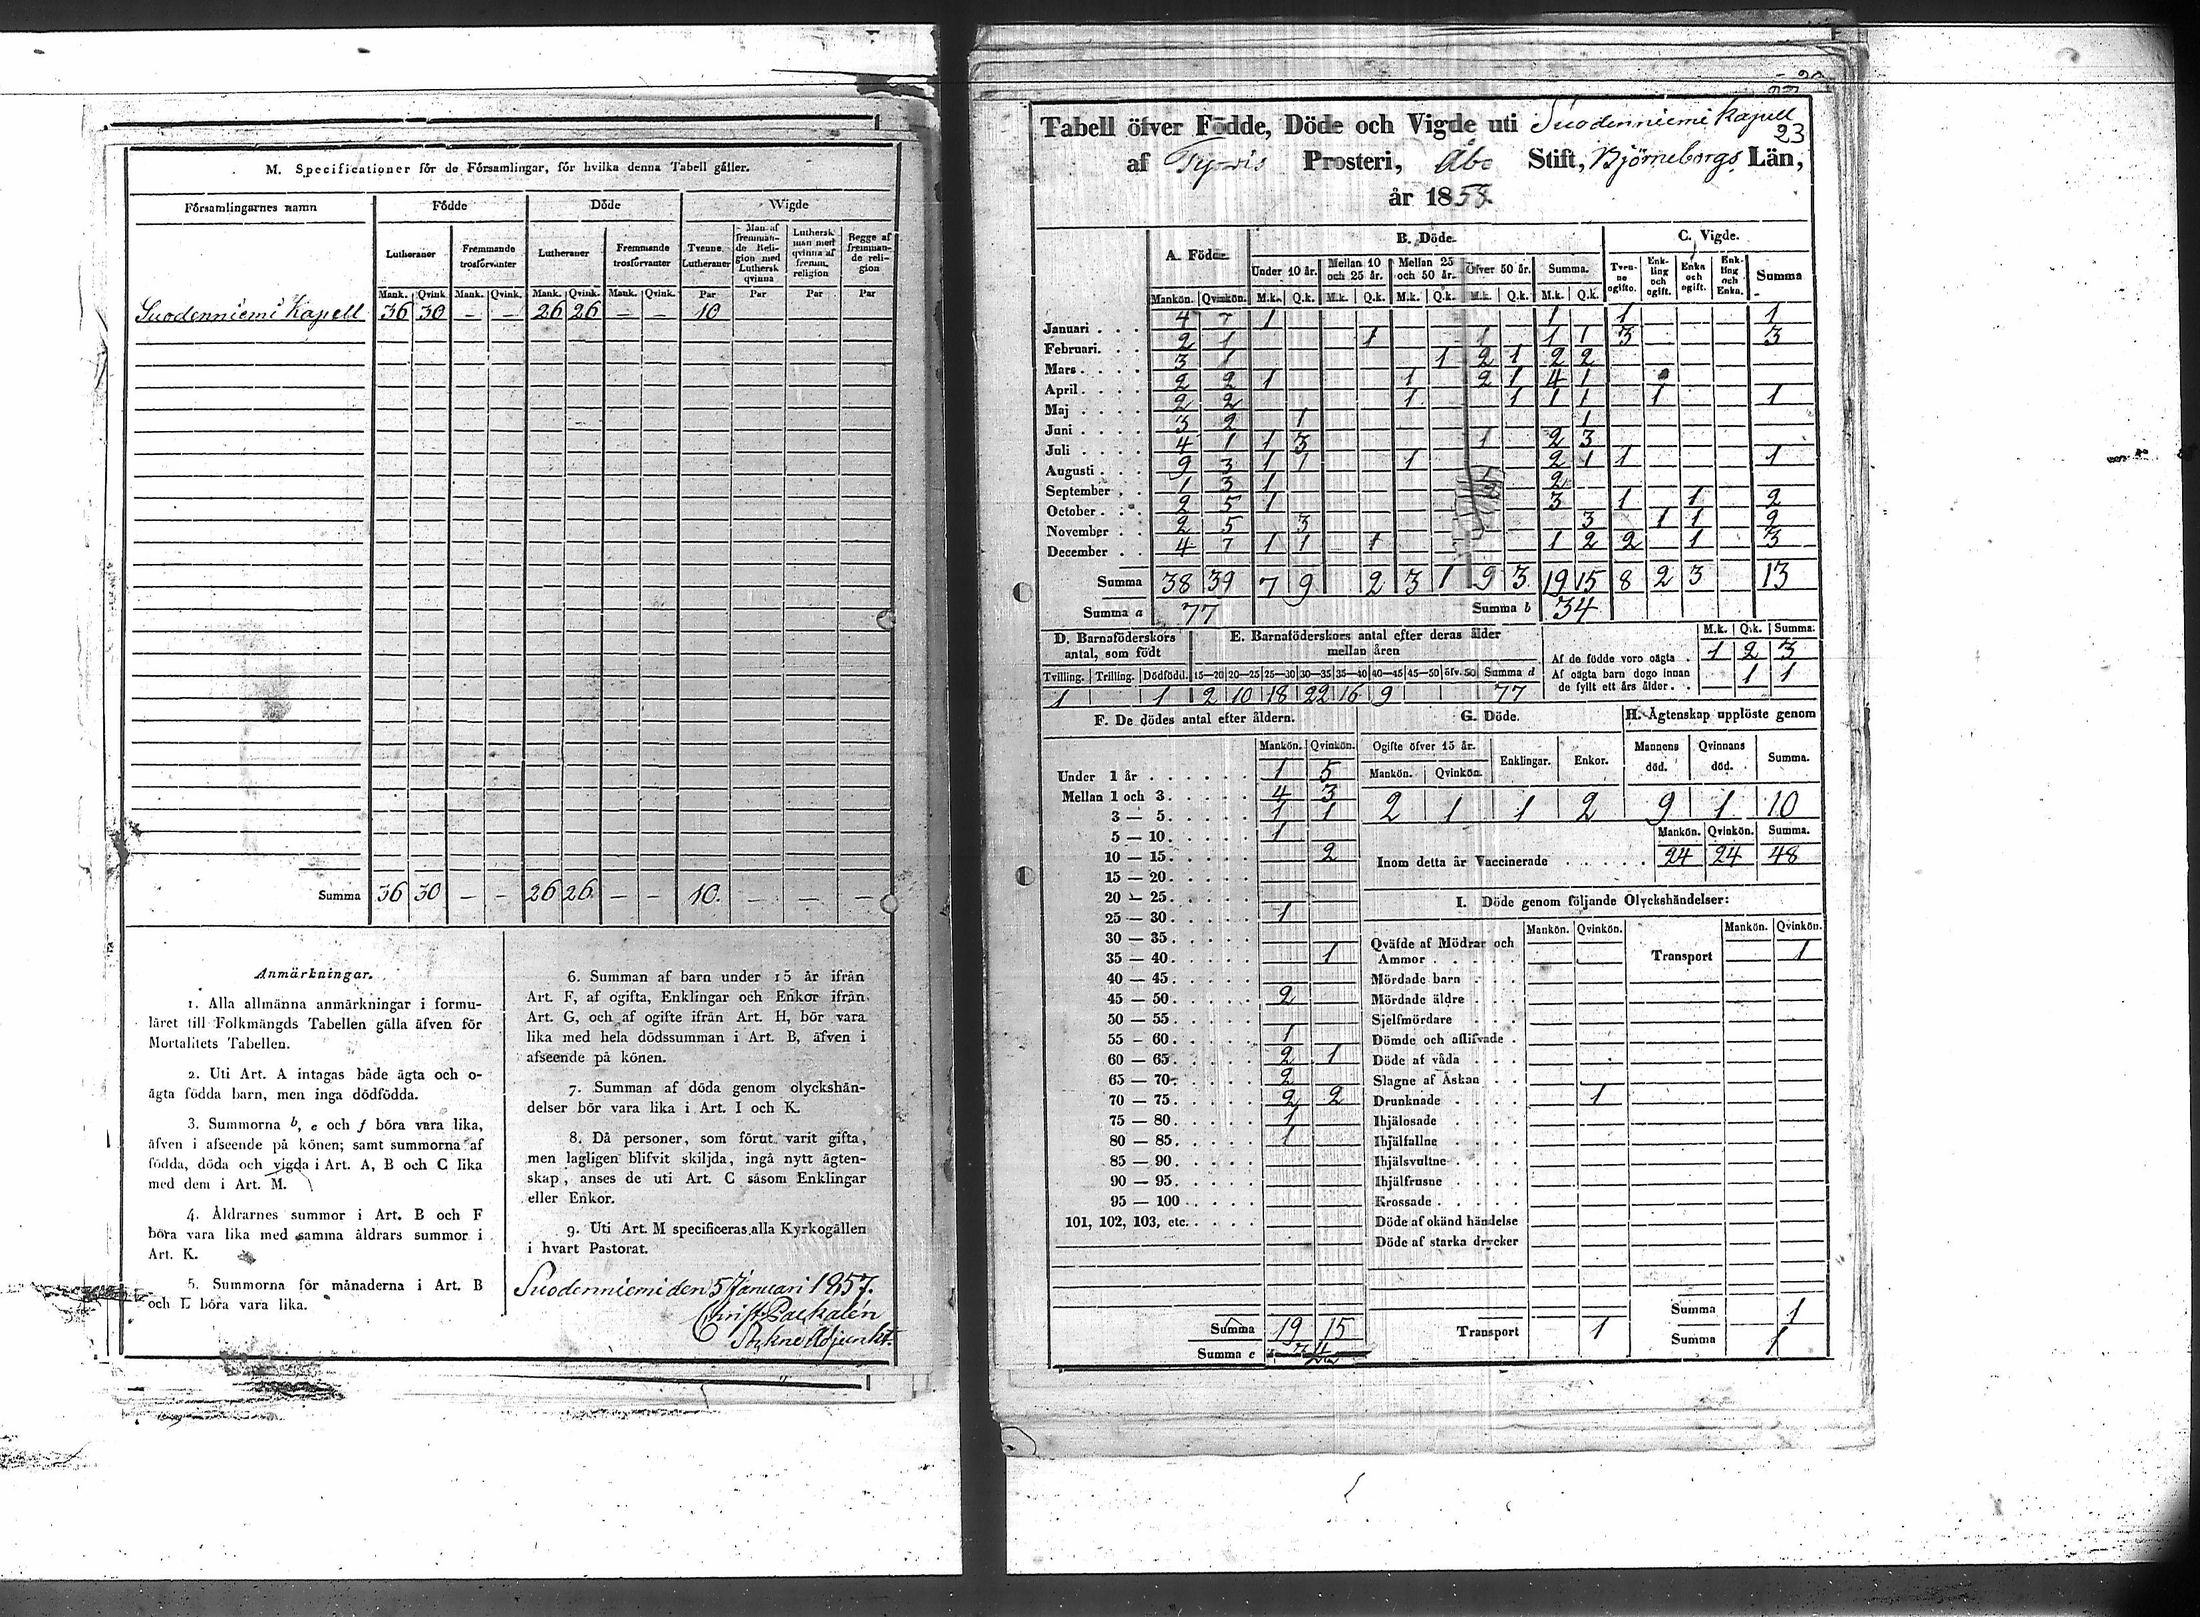 M. Specificationer för de Församlingar, för hvilka denna Tabell gäller.
Församlingarnes namn | Födde | Döde | Wigde
Lutheraner | Fremmande trosförvanter | Lutheraner | Fremmande trosförvanter | Tvenne Lutheraner | Man af fremmande Religion med Luthersk qvinna | Luthersk man med qvinna af fremm. religion | Begge af fremmande religion
Mank. | Qvink. | Mank. | Qvink. | Mank. | Qvink. | Mank. | Qvink. | Par | Par | Par | Par
Suodenniemi Kapell | 36 | 30 | — | — | 26 | 26 | — | — | 10
Summa | 36 | 30 | — | — | 26 | 26 | — | — | 10. | — | — | —
Anmärkningar.
1. Alla allmänna anmärkningar i formu-
läret till Folkmängds Tabellen gälla äfven för
Mortalitets Tabellen.
2. Uti Art. A intagas både ägta och o-
ägta födda barn, men inga dödfödda.
3. Summorna b, e och f böra vara lika,
äfven i afseende på könen; samt summorna af
födda, döda och vigda i Art. A, B och C lika
med dem i Art. M.
4. Åldrarnes summor i Art. B och F
böra vara lika med samma åldrars summor i
Art. K.
5. Summorna för månaderna i Art. B
och L böra vara lika.
6. Summan af barn under 15 år ifrån
Art. F, af ogifta, Enklingar och Enkor ifrån
Art. G, och af ogifte ifrån Art. H, bör vara
lika med hela dödssumman i Art. B, äfven i
afseende på könen.
7. Summan af döda genom olyckshän-
delser bör vara lika i Art. I och K.
8. Då personer, som förut varit gifta,
men lagligen blifvit skiljda, ingå nytt ägten-
skap, anses de uti Art. C såsom Enklingar
eller Enkor.
9. Uti Art. M specificeras alla Kyrkogällen
i hvart Pastorat.
Suodenniemi den 5 Januari 1857.
Christ. Packalén
Sockne Adjunkt.
23
Tabell öfver Födde, Döde och Vigde uti Suodenniemi Kapell
af Tyrvis Prosteri, Åbo Stift, Björneborgs Län,
år 1858
A. Födde. | B. Döde. | C. Vigde.
Under 10 år. | Mellan 10 och 25 år. | Mellan 25 och 50 år. | Öfver 50 år. | Summa. | Tvenne ogifte. | Enkling och ogift. | Enka och ogift. | Enkling och Enka. | Summa
Mankön. | Qvinkön. | M.k. | Q.k. | M.k. | Q.k. | M.k. | Q.k. | M.k. | Q.k. | M.k. | Q.k.
Januari | 4 | 7 | 1 | 1 | 1 | 1
Februari | 2 | 1 | 1 | 1 | 1 | 1 | 3 | 3
Mars | 3 | 1 | 1 | 2 | 1 | 2 | 2
April | 2 | 2 | 1 | 1 | 2 | 1 | 4 | 1
Maj | 2 | 2 | 1 | 1 | 1 | 1 | 1 | 1
Juni | 3 | 2 | 1 | 1
Juli | 4 | 1 | 1 | 3 | 1 | 2 | 3
Augusti | 9 | 3 | 1 | 1 | 1 | 2 | 1 | 1 | 1
September | 1 | 3 | 1 | 2
October | 2 | 5 | 1 | 2 | 3 | 1 | 1 | 2
November | 2 | 5 | 3 | 3 | 1 | 1 | 2
December | 4 | 7 | 1 | 1 | 1 | 1 | 2 | 2 | 1 | 3
Summa | 38 | 39 | 7 | 9 | 2 | 3 | 1 | 9 | 3 | 19 | 15 | 8 | 2 | 3 | 13
Summa a 77 | Summa b 34
D. Barnaföderskors antal, som födt
Tvilling. | Trilling. | Dödfödd.
1 | 1
E. Barnaföderskors antal efter deras ålder mellan åren
15—20 | 20—25 | 25—30 | 30—35 | 35—40 | 40—45 | 45—50 | öfv. 50 | Summa d
2 | 10 | 18 | 22 | 16 | 9 | 77
M.k. | Q.k. | Summa.
Af de födde voro oägta . 1 | 2 | 3
Af oägta barn dogo innan de fyllt ett års ålder . . 1 | 1
F. De dödes antal efter åldern.
Mankön. | Qvinkön.
Under 1 år | 1 | 5
Mellan 1 och 3 | 4 | 3
3 — 5 | 1 | 1
5 — 10 | 1
10 — 15 | 2
15 — 20
20 — 25
25 — 30 | 1
30 — 35
35 — 40 | 1
40 — 45
45 — 50 | 2
50 — 55
55 — 60 | 1
60 — 65 | 2 | 1
65 — 70 | 2
70 — 75 | 2 | 2
75 — 80 | 1
80 — 85 | 1
85 — 90
90 — 95
95 — 100
101, 102, 103, etc.
Summa | 19 | 15
Summa c | 34
G. Döde.
Ogifte öfver 15 år. | Enklingar. | Enkor.
Mankön. | Qvinkön.
2 | 1 | 1 | 2
H. Ägtenskap upplöste genom
Mannens död. | Qvinnans död. | Summa.
9 | 1 | 10
Mankön. | Qvinkön. | Summa.
Inom detta år Vaccinerade | 24 | 24 | 48
I. Döde genom följande Olyckshändelser:
Mankön. | Qvinkön. | Mankön. | Qvinkön.
Qväfde af Mödrar och Ammor | Transport | 1
Mördade barn
Mördade äldre
Sjelfmördare
Dömde och aflifvade
Döde af våda
Slagne af Åskan
Drunknade | 1
Ihjälosade
Ihjälfallne
Ihjälsvultne
Ihjälfrusne
Krossade
Döde af okänd händelse
Döde af starka drycker
Summa | 1
Transport | 1 | Summa | 1